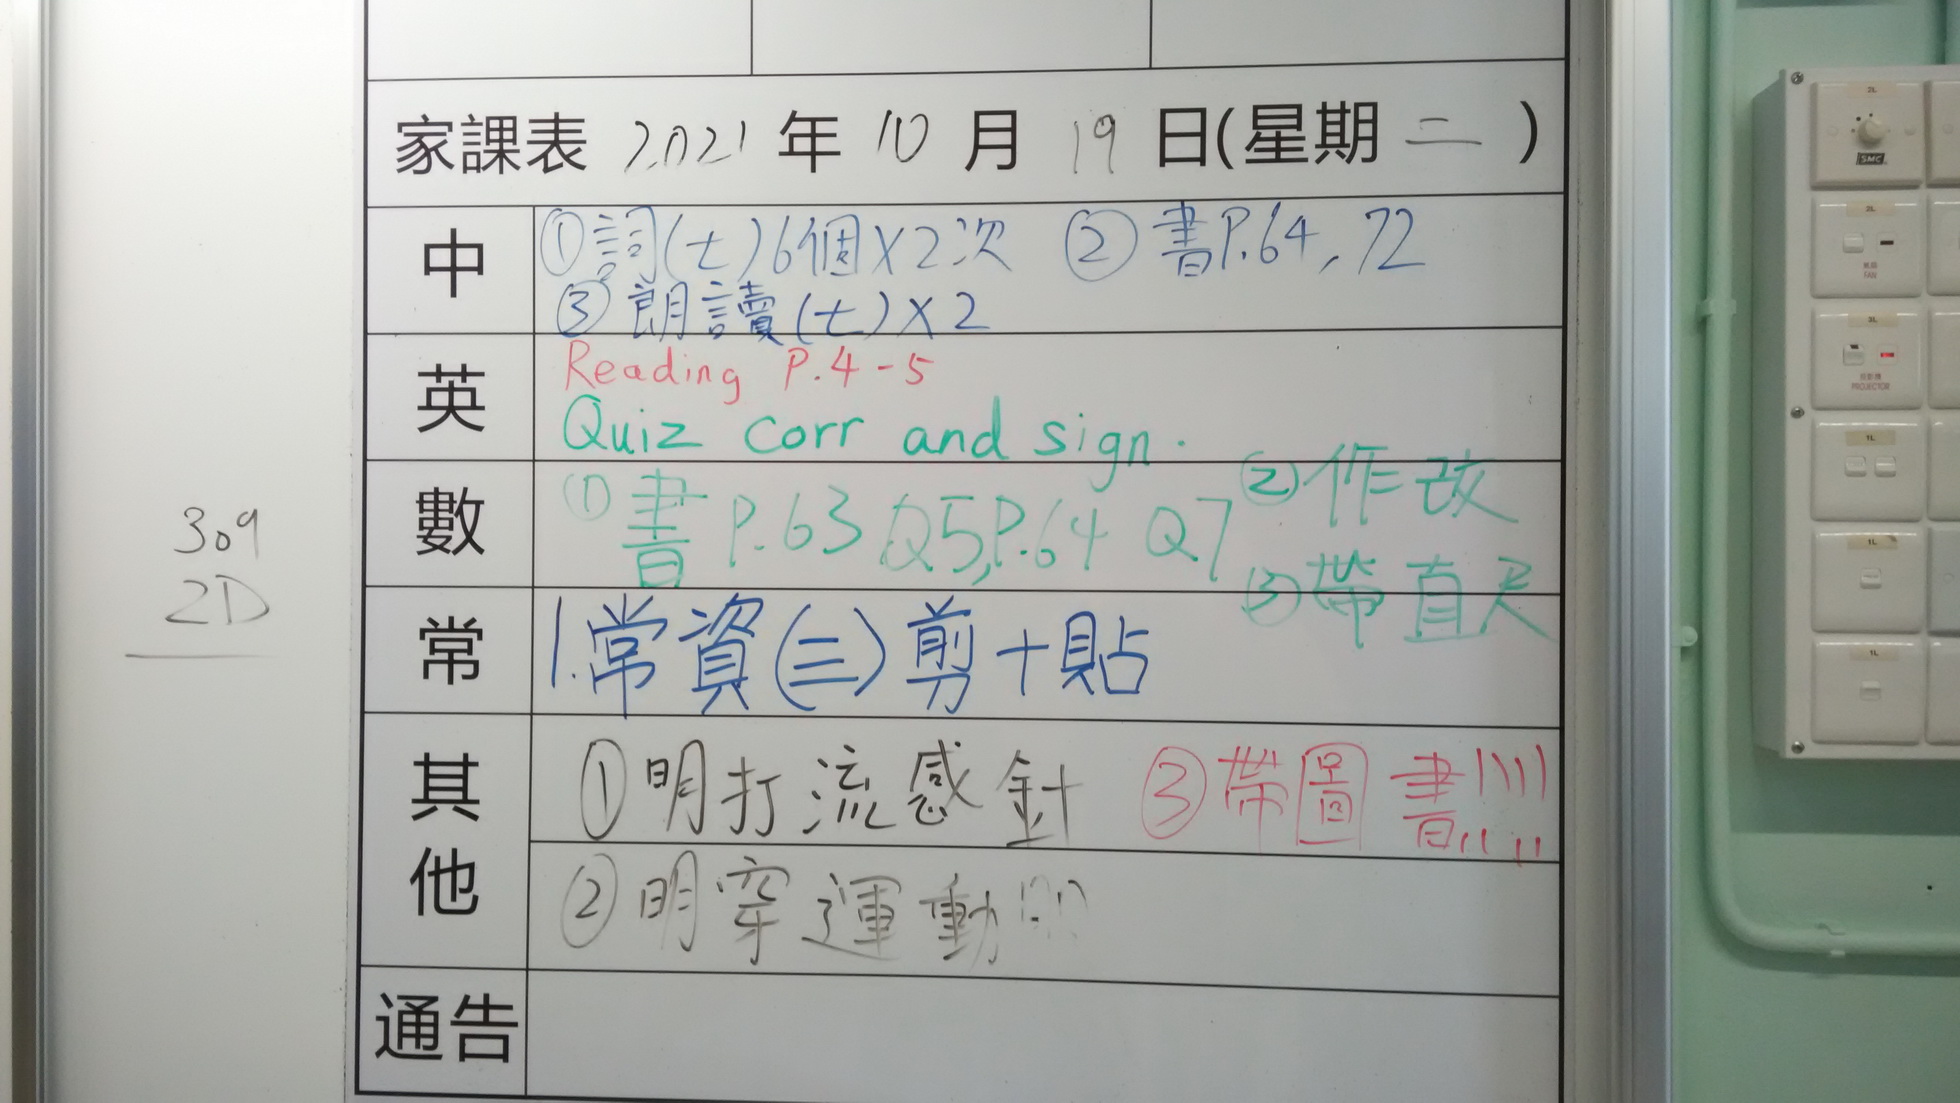 家課表 2021 年 10 月 19 日(星期 二 )
中 ①詞(七)6個X2次 ②書P.64,72
③朗讀(七)X2
英 Reading P.4-5
Quiz corr and sign.
數 ①書 P.63 Q5,P.64 Q7 ②作改
③帶直尺
常 1.常資(三)剪+貼
其他 ①明打流感針 ③帶圖書!!!!!
②明穿運動
通告
309
2D
2L
SMC
2L
風扇
FAN
3L
投影機
PROJECTOR
1L
1L
1L